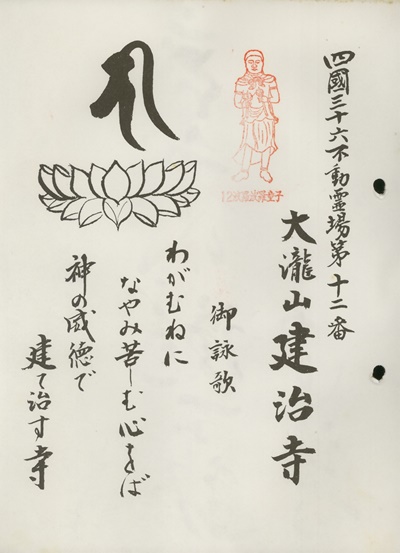 四國三十六不動霊場第十二番
大瀧山建治寺
御詠歌
わがむねに
なやみ苦しむ心をば
神の威徳で
建て治す寺